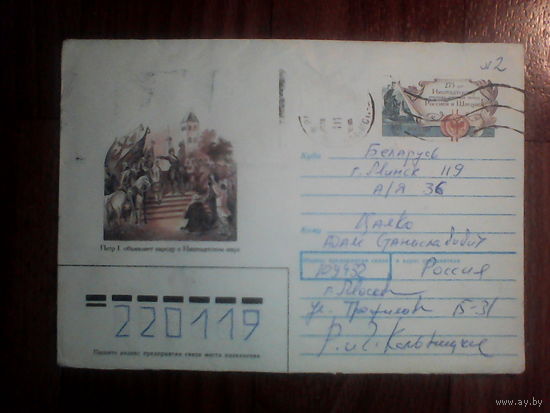 №2
275 лет
Ништадтский
России и Швеции
Куда
Беларусь
г. Минск 119
А/Я 36
Кому
Цалко
Адам Станиславович
Петр I объявляет народу о Ништадтском мире
Индекс предприятия связи и адрес отправителя
109432
Россия
г. Москва
ул. Трофимова 15-31
220119
Пишите индекс предприятия связи места назначения
www.ay.by